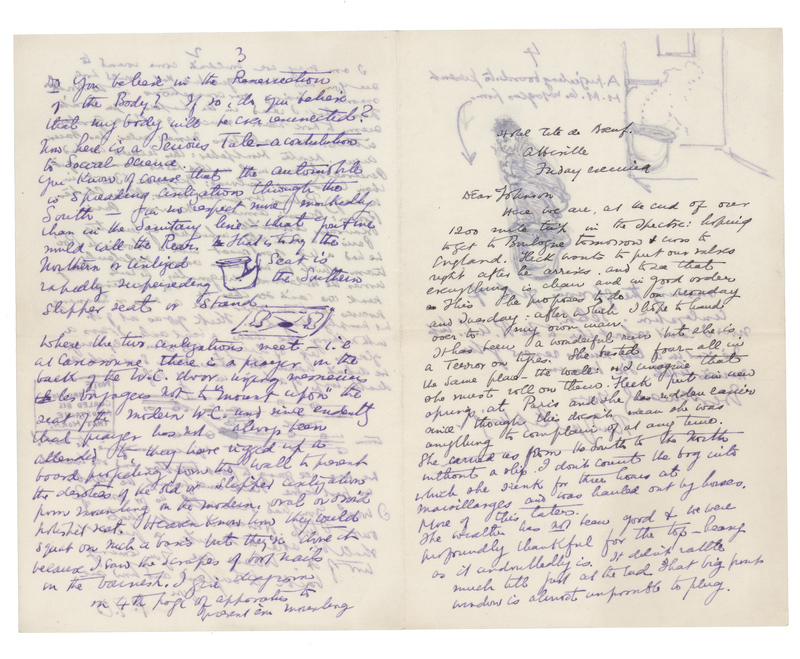 3
Do you believe in the Resurrection
of the Body? If so, do you believe
that my body will be
Now here is a Serious Tale – a contribution
to Social Science.
You know of course that the automobile
is spreading civilization through the
South – in no respect more markedly
than in the Sanitary line – what
would call the Rear. That is to say the
Northern or civilized Seat is
rapidly superseding the Southern
slipper seat or Stand
Where the two civilizations meet – i.e
at Carcassonne there is a prayer on the
back of the W.C. door urging messieurs
les voyageurs not to "mount upon" the
seat of the modern W.C. and since evidently
that prayer has not always been
attended to they have rigged up a
board projecting from the wall to prevent
the devotees of the old or slipper civilization
from mounting on the modern, oval or ovoid
polished seat. Heaven knows how they could
squat on such a basis but they've done it
because I saw the scrapes of boot nails
on the I give diagram
on 4th page of apparatus to
prevent 'em mounting
4
Hotel Tête de Bœuf.
Abbeville
Friday evening
Dear Johnson
Here we are, at the end of over
1200 mile trip in the Spectre: hoping
to get to Boulogne tomorrow & cross to
England. Heck wants to put our
right after he arrives. and to see that
everything is clean and in good order
This he proposes to do on Monday
and Tuesday: after which I hope to hand
over to my own man.
It has been a wonderful run but she is
a Terror on tyres. She busted four – all in
the same place – the wall: so I imagine that
she must roll on them. Heck put in new
springs at Paris and she has ridden easier
since though this doesn't mean she was
anything to complain of at any time.
She carried us from the South to the North
without a slip. I don't count the bog into
which she sank for three hours at
and was hauled out by horses.
More of this later.
The weather has not been good & we were
profoundly thankful for the top – heavy
as it undoubtedly is. It didn't rattle
much till just at the end. That big
window is almost impossible to plug.